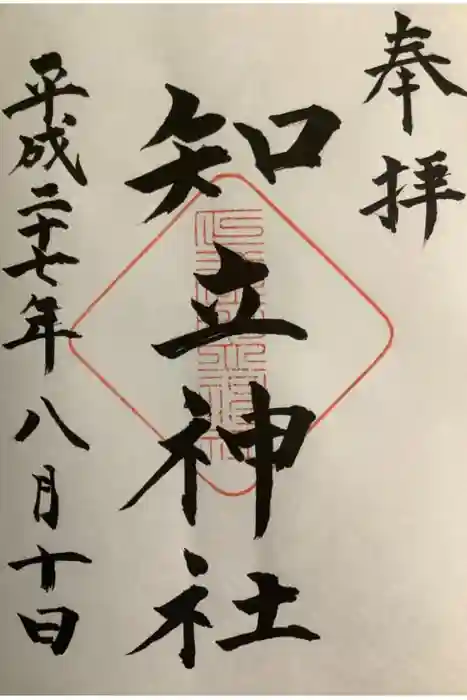 奉拝
知立神社
平成二十七年八月十日